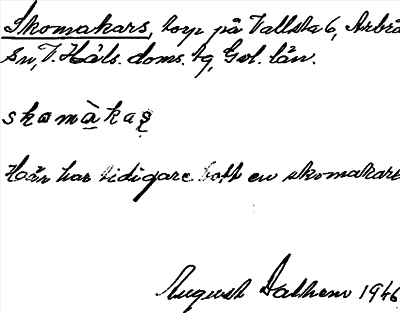 Skomakars, torp på Vallsta 6, Arbrå
sn, V. Häls. doms. tg, Gvl. län.
skomàkaṣ
Här har tidigare bott en skomakare
August Dalhem 1946